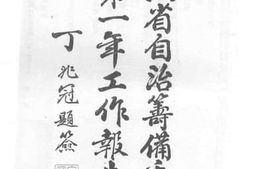 省自治籌備
第一年工作報告
丁兆冠題簽